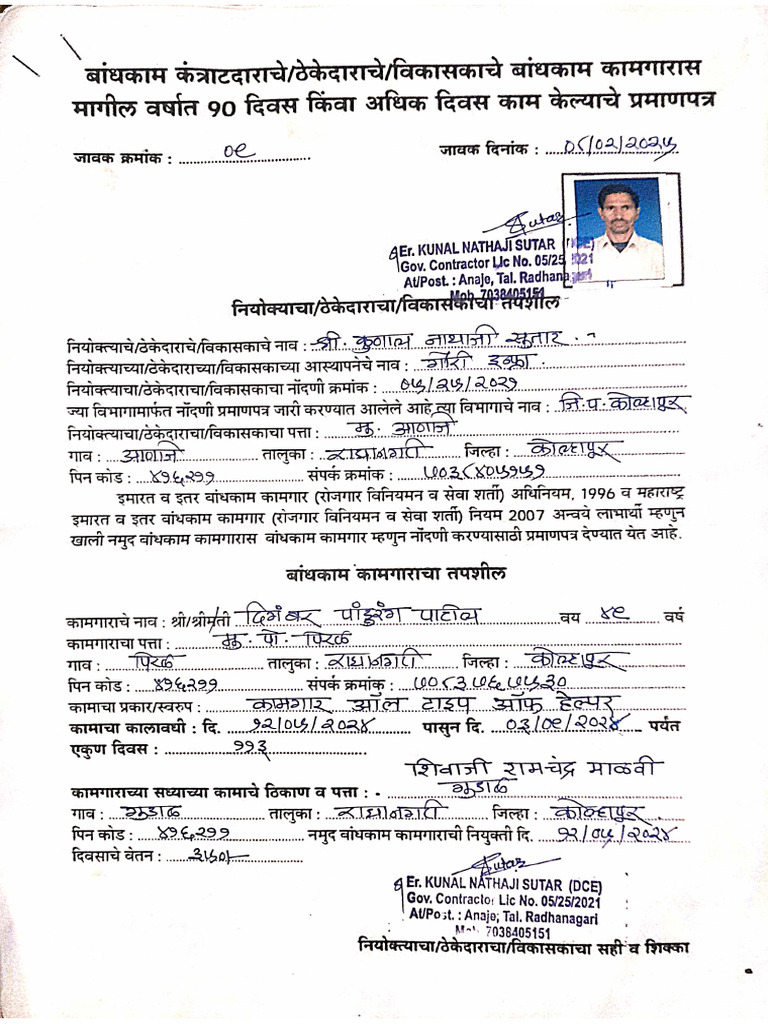 बांधकाम कंत्राटदाराचे/ठेकेदाराचे/विकासकाचे बांधकाम कामगारास
मागील वर्षात 90 दिवस किंवा अधिक दिवस काम केल्याचे प्रमाणपत्र
जावक क्रमांक : ०९ जावक दिनांक : ०८/०२/२०२५
Sutar
Er. KUNAL NATHAJI SUTAR (DCE)
Gov. Contractor Lic No. 05/25 2021
At/Post. : Anaje, Tal. Radhanagari
Mob. 7038405151
नियोक्याचा/ठेकेदाराचा/विकासकाचा तपशील
नियोक्त्याचे/ठेकेदाराचे/विकासकाचे नाव : श्री. कुणाल नाथाजी सुतार.
नियोक्त्याच्या/ठेकेदाराच्या/विकासकाच्या आस्थापनेचे नाव : गौरी इन्फ्रा.
नियोक्त्याचा/ठेकेदाराचा/विकासकाचा नोंदणी क्रमांक : ०५/२५/२०२१
ज्या विभागामार्फत नोंदणी प्रमाणपत्र जारी करण्यात आलेले आहे त्या विभागाचे नाव : जि.प.कोल्हापूर
नियोक्त्याचा/ठेकेदाराचा/विकासकाचा पत्ता : मु. आणाजे
गाव : आणाजे तालुका : राधानगरी जिल्हा : कोल्हापूर
पिन कोड : ४१६२११ संपर्क क्रमांक : ७०३८४०५१५१
इमारत व इतर बांधकाम कामगार (रोजगार विनियमन व सेवा शर्ती) अधिनियम, 1996 व महाराष्ट्र
इमारत व इतर बांधकाम कामगार (रोजगार विनियमन व सेवा शर्ती) नियम 2007 अन्वये लाभार्थी म्हणुन
खाली नमुद बांधकाम कामगारास बांधकाम कामगार म्हणुन नोंदणी करण्यासाठी प्रमाणपत्र देण्यात येत आहे.
बांधकाम कामगाराचा तपशील
कामगाराचे नाव : श्री/श्रीमती दिगंबर पांडुरंग पाटील वय ४९ वर्ष
कामगाराचा पत्ता : मु. पो. पिरळ
गाव : पिरळ तालुका : राधानगरी जिल्हा : कोल्हापूर
पिन कोड : ४१६२११ संपर्क क्रमांक : ७०८३७६७५३०
कामाचा प्रकार/स्वरुप : कामगार ऑल टाइप ऑफ हेल्पर
कामाचा कालावधी : दि. १२/०५/२०२४ पासुन दि. ०३/०९/२०२४ पर्यंत
एकुण दिवस : ११३
शिवाजी रामचंद्र माळवी
कामगाराच्या सध्याच्या कामाचे ठिकाण व पत्ता : - गुडाळ
गाव : गुडाळ तालुका : राधानगरी जिल्हा : कोल्हापूर.
पिन कोड : ४१६२११ नमुद बांधकाम कामगाराची नियुक्ती दि. १२/०५/२०२४
दिवसाचे वेतन :
Sutar
Er. KUNAL NATHAJI SUTAR (DCE)
Gov. Contractor Lic No. 05/25/2021
At/Post. : Anaje, Tal. Radhanagari
Mob. 7038405151
नियोक्त्याचा/ठेकेदाराचा/विकासकाचा सही व शिक्का